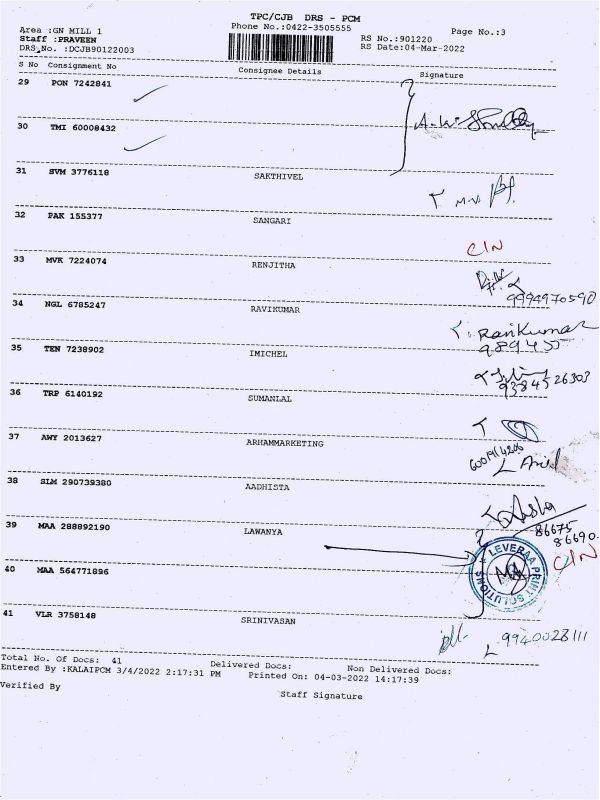 TPC/CJB DRS - PCM
Area :GN MILL 1 Phone No.:0422-3505555 Page No.:3
Staff :PRAVEEN RS No.:901220
DRS No. :DCJB90122003 RS Date:04-Mar-2022
S No Consignment No Consignee Details Signature
29 PON 7242841
30 TMI 60008432
31 SVM 3776118 SAKTHIVEL
32 PAK 155377 SANGARI
CIN
33 MVK 7224074 RENJITHA
9994970590
34 NGL 6785247 RAVIKUMAR
RaviKumar
989455
35 TEN 7238902 IMICHEL
9384526303
36 TRP 6140192 SUMANLAL
37 AWY 2013627 ARHAMMARKETING
38 SLM 290739380 AADHISTA
86675
86690
39 MAA 288892190 LAWANYA
CIN
LEVERAA PRINT SOLUTIONS
40 MAA 564771896
41 VLR 3758148 SRINIVASAN
9940028111
Total No. Of Docs: 41 Delivered Docs: Non Delivered Docs:
Entered By :KALAIPCM 3/4/2022 2:17:31 PM Printed On: 04-03-2022 14:17:39
Verified By Staff Signature